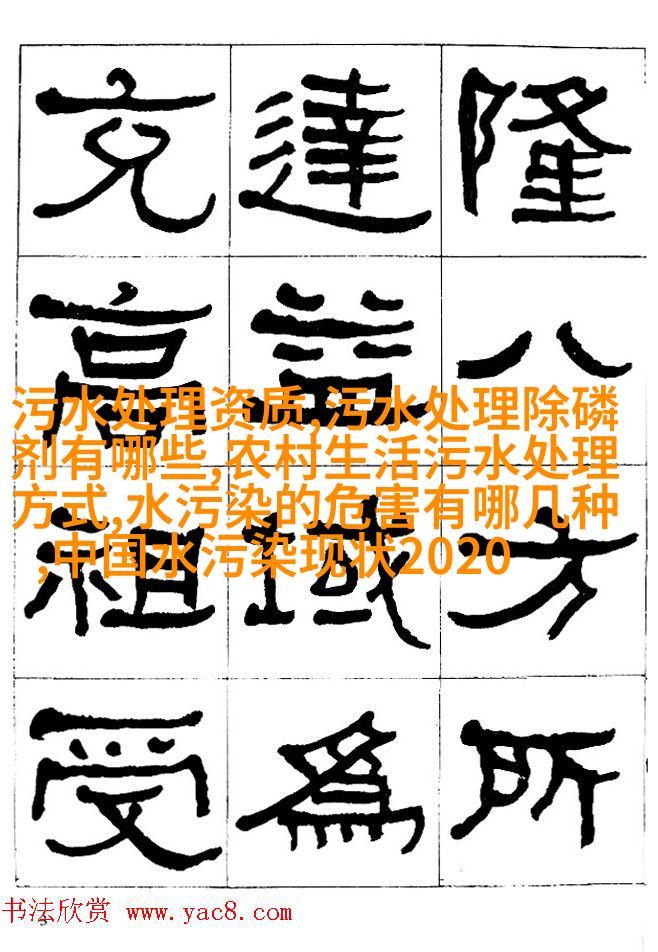 隆八方所
達益域爲
充高祖受
污水处理资质,污水处理除磷
剂有哪些,农村生活污水处理
方式,水污染的危害有哪几种
,中国水污染现状2020
书法欣赏 www.yac8.com
3